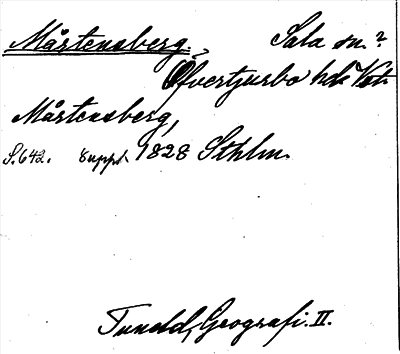 Mårtensberg. Sala sn.?
Öfvertjurbo hd. Vstm.
Mårtensberg,
S. 642. 8 uppl. 1828 Sthlm.
Tuneld, Geografi. II.